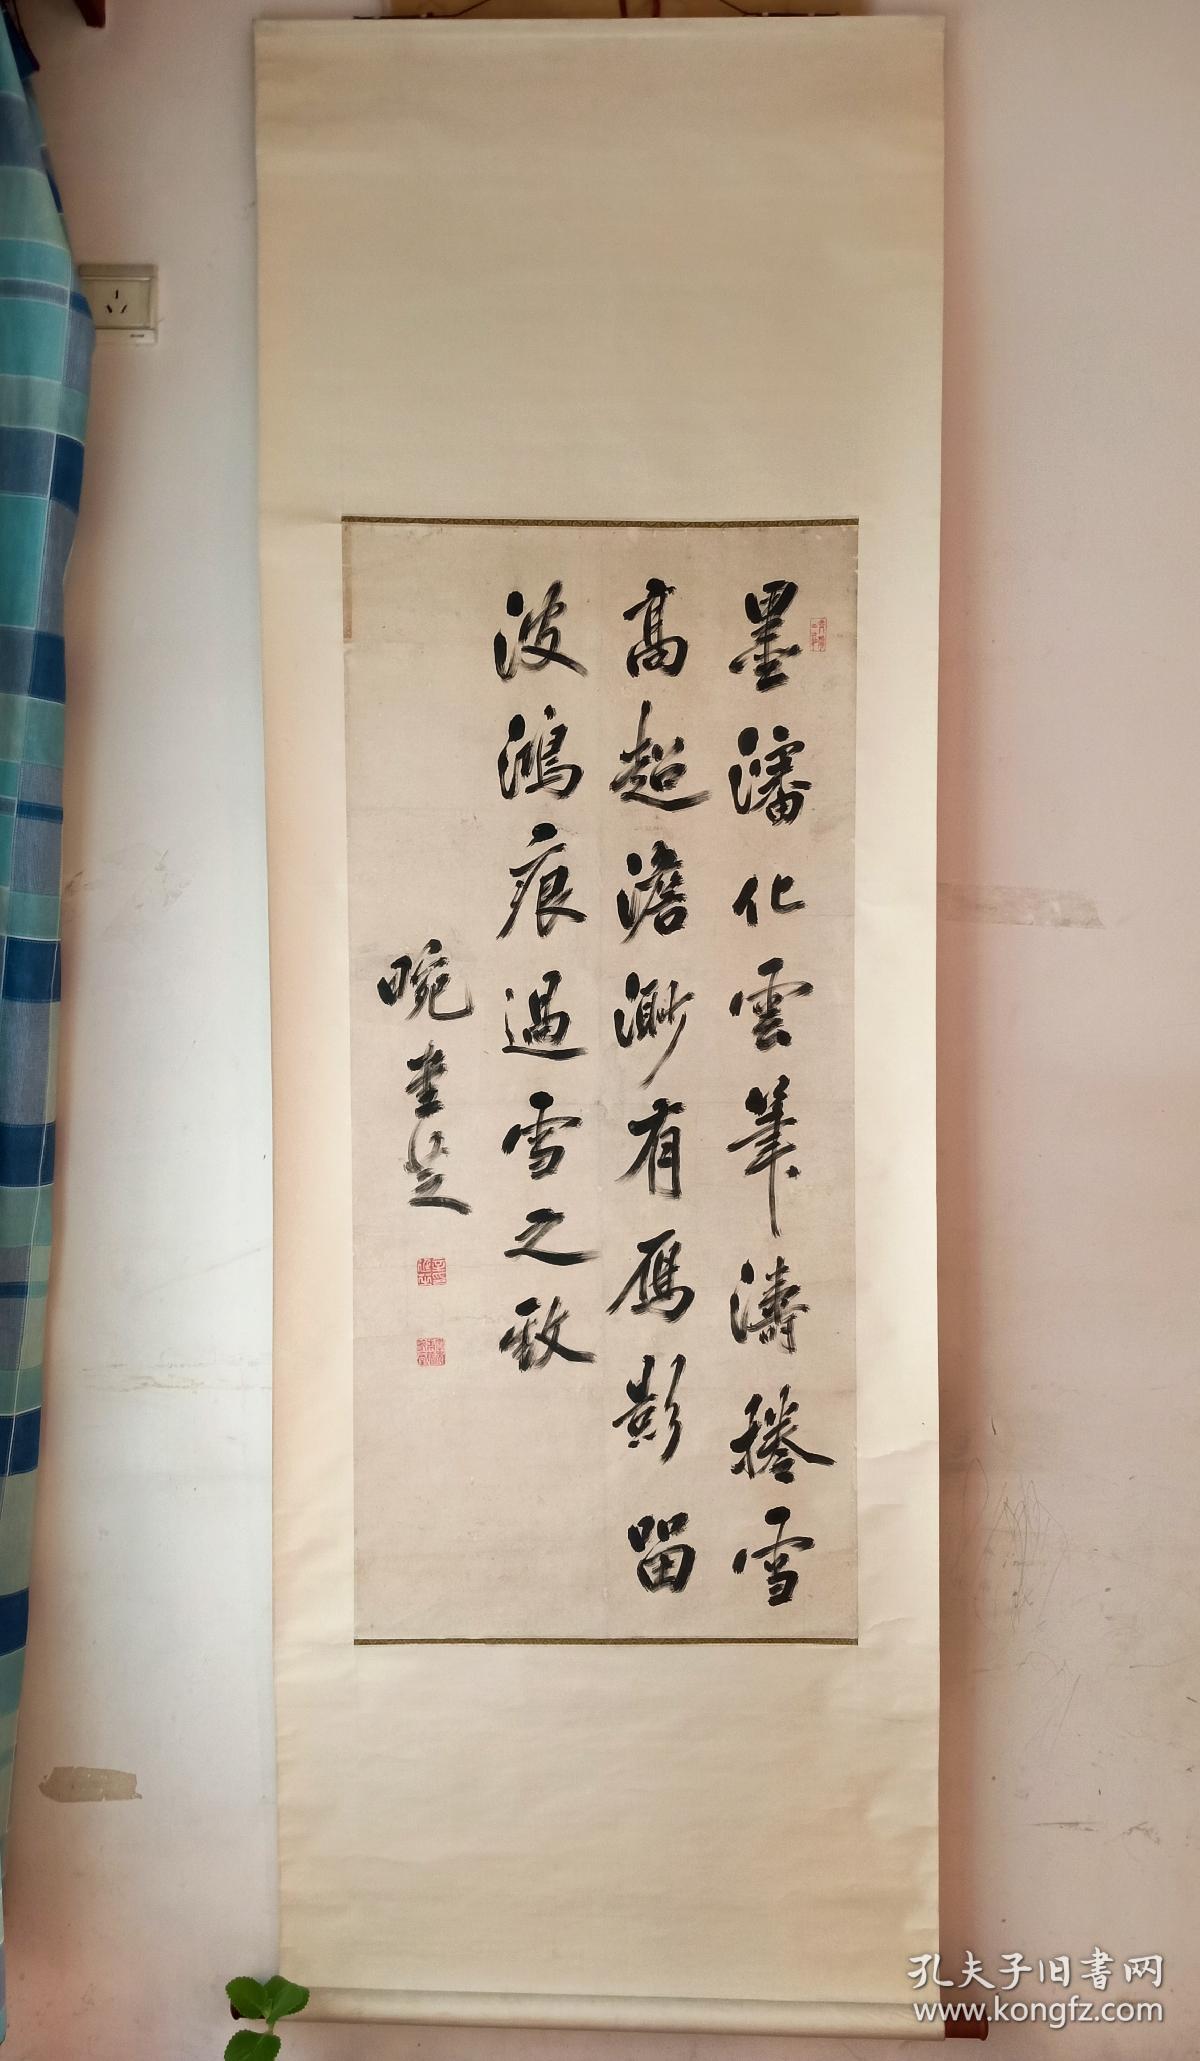 墨瀋化雲筆濤捲雪
高超澹渺有雁影留
波鴻痕過雪之致
晼
孔夫子旧書网
www.kongfz.com